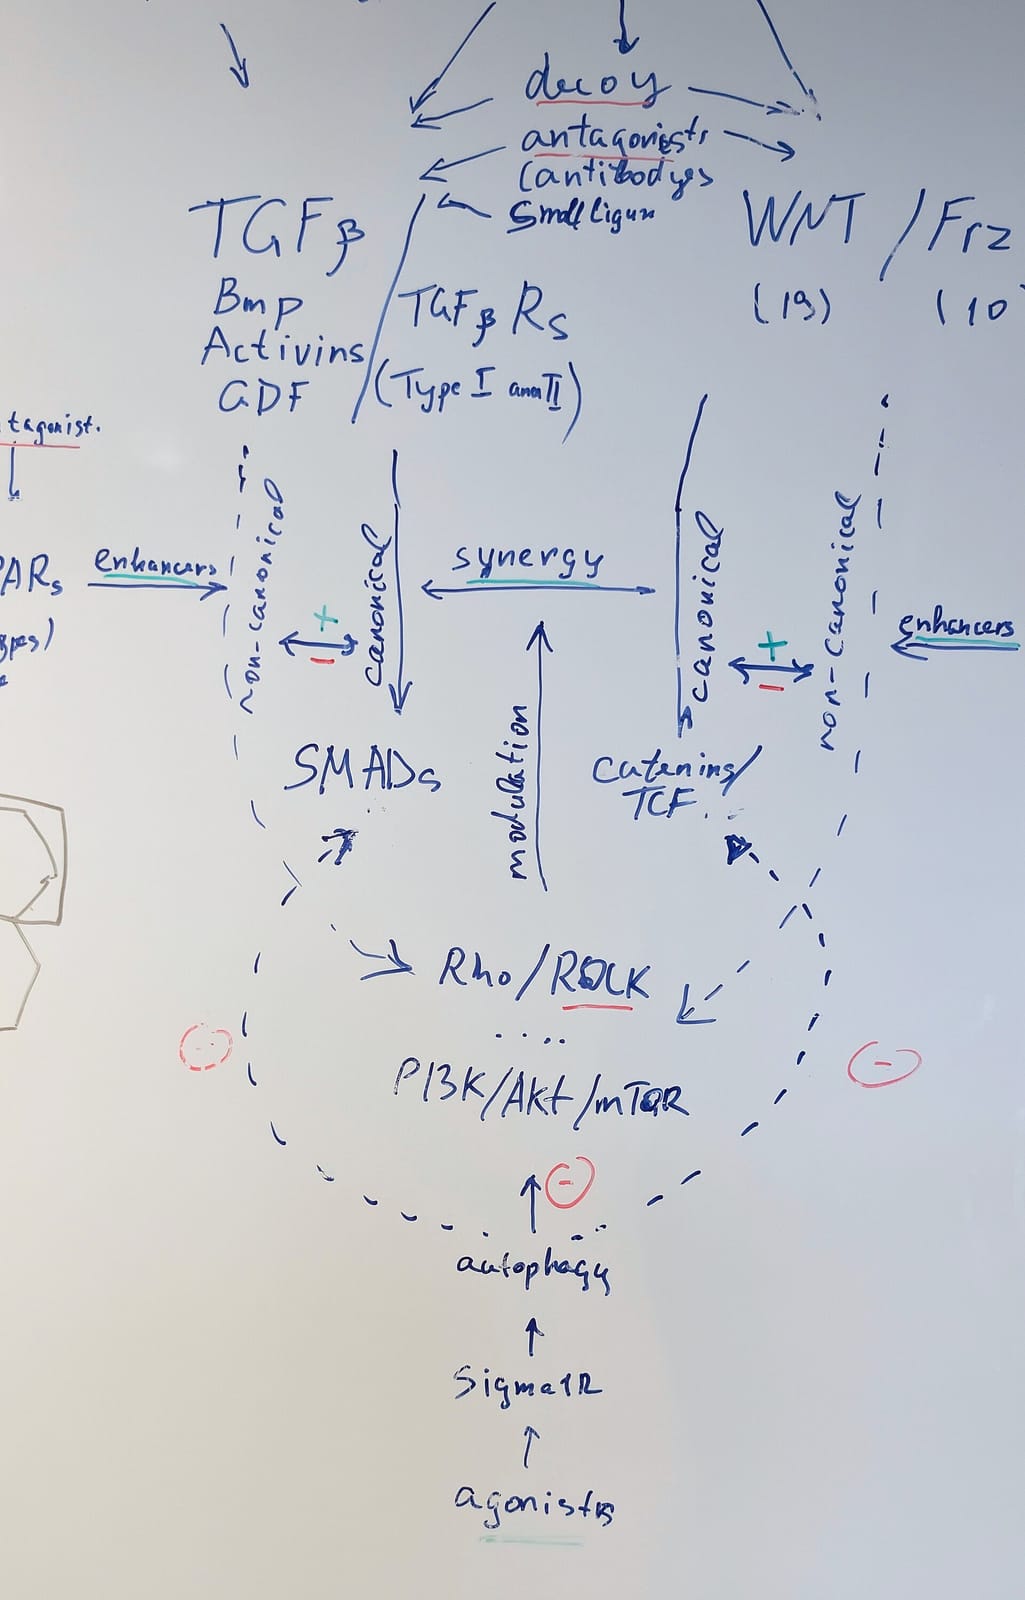 decoy
antagonists
(antibodyes
Small ligan
TGFβ
WNT / Frz
Bmp
TGFβ Rs
(19)
(10
Activins
(Type I and II)
GDF
tagonist.
non-canonical
canonical
synergy
canonical
non-canonical
ARs
enhancers
enhancers
+
-
+
-
pes)
SMADs
modulation
Catenins/
TCF
Rho/ROCK
....
PI3K/Akt/mTOR
-
-
-
autophagy
Sigma1R
agonists